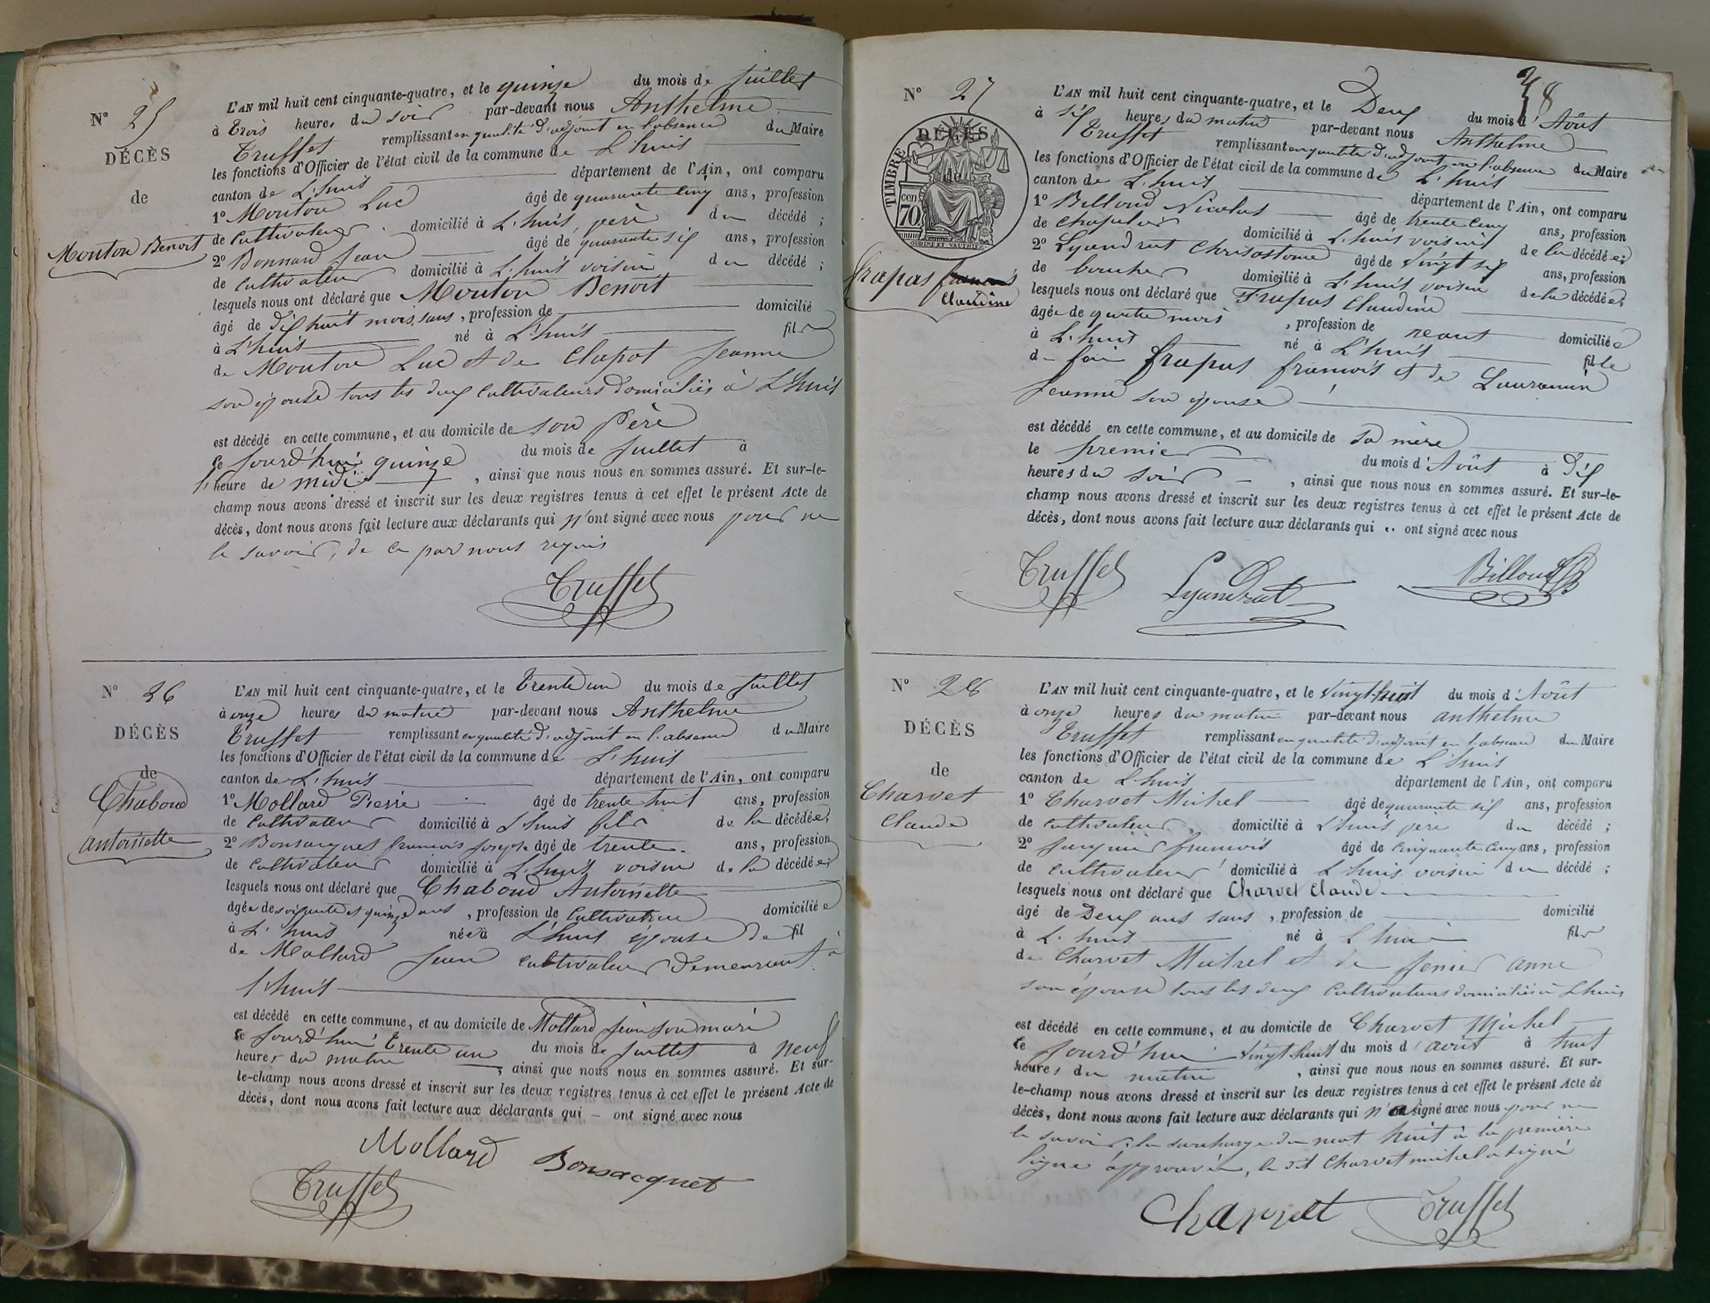 N° 25
DÉCÈS
de
Mouton Benoit
L'AN mil huit cent cinquante-quatre, et le quinze du mois de Juillet
à trois heures du soir par-devant nous Anthelme
Truffet remplissant en qualité d'adjoint en l'absence du Maire
les fonctions d'Officier de l'état civil de la commune de L'huis
canton de L'huis département de l'Ain, ont comparu
1° Mouton Luc âgé de quarante cinq ans, profession
de cultivateur domicilié à L'huis, père du décédé ;
2° Bonnard Jean âgé de quarante six ans, profession
de cultivateur domicilié à L'huis voisin du décédé ;
lesquels nous ont déclaré que Mouton Benoit
âgé de dix huit mois, sans, profession de domicilié
à L'huis né à L'huis fils
de Mouton Luc et de Clapot Jeanne
son épouse tous les deux cultivateurs domiciliés à L'huis
est décédé en cette commune, et au domicile de son père
le Jourd'hui quinze du mois de Juillet à
heure de midi, ainsi que nous nous en sommes assuré. Et sur-le-
champ nous avons dressé et inscrit sur les deux registres tenus à cet effet le présent Acte de
décès, dont nous avons fait lecture aux déclarants qui n'ont signé avec nous pour ne
le savoir, de ce par nous requis
Truffet
N° 26
DÉCÈS
de
Chaboud
Antoinette
L'AN mil huit cent cinquante-quatre, et le trente un du mois de Juillet
à onze heures du matin par-devant nous Anthelme
Truffet remplissant en qualité d'adjoint en l'absence du Maire
les fonctions d'Officier de l'état civil de la commune de L'huis
canton de L'huis département de l'Ain, ont comparu
1° Mollard Pierre âgé de trente huit ans, profession
de cultivateur domicilié à L'huis fils de la décédée ;
2° Bonsacquet françois joseph âgé de trente ans, profession
de cultivateur domicilié à L'huis voisin de la décédée ;
lesquels nous ont déclaré que Chaboud Antoinette
âgée de soixante et quinze ans, profession de cultivatrice domiciliée
à L'huis née à L'huis épouse de fil
de Mollard Jean cultivateur demeurant à
l'huis
est décédé en cette commune, et au domicile de Mollard Jean son mari
le Jourd'hui trente un du mois de Juillet à neuf
heures du matin, ainsi que nous nous en sommes assuré. Et sur-
le-champ nous avons dressé et inscrit sur les deux registres tenus à cet effet le présent Acte de
décès, dont nous avons fait lecture aux déclarants qui – ont signé avec nous
Mollard Bonsacquet
Truffet
38
N° 27
DÉCÈS
de
TIMBRE
cen
70
frapas françois
claudine
L'AN mil huit cent cinquante-quatre, et le Deux du mois d'Août
à six heures du matin par-devant nous Anthelme
Truffet remplissant en qualité d'adjoint en l'absence du Maire
les fonctions d'Officier de l'état civil de la commune de L'huis
canton de L'huis département de l'Ain, ont comparu
1° Billoud Nicolas âgé de trente cinq ans, profession
de chapelier domicilié à L'huis voisin de la décédée ;
2° Lyandrat Chrisostome âgé de vingt six ans, profession
de boucher domicilié à L'huis voisin de la décédée ;
lesquels nous ont déclaré que Frapas Claudine
âgée de quatre mois, profession de néant domiciliée
à L'huis né à L'huis fille
de feu frapas françois et de
Jeanne son épouse
est décédé en cette commune, et au domicile de sa mère
le premier du mois d'Août à Dix
heures du soir, ainsi que nous nous en sommes assuré. Et sur-le-
champ nous avons dressé et inscrit sur les deux registres tenus à cet effet le présent Acte de
décès, dont nous avons fait lecture aux déclarants qui .. ont signé avec nous
Truffet Lyandrat Billoud
N° 28
DÉCÈS
de
Charvet
Claude
L'AN mil huit cent cinquante-quatre, et le vingt-huit du mois d'Août
à onze heures du matin par-devant nous anthelme
Truffet remplissant en qualité d'adjoint en l'absence du Maire
les fonctions d'Officier de l'état civil de la commune de L'huis
canton de L'huis département de l'Ain, ont comparu
1° Charvet Michel âgé de quarante six ans, profession
de cultivateur, domicilié à L'huis père du décédé ;
2° françois âgé de cinquante cinq ans, profession
de cultivateur domicilié à L'huis voisin du décédé ;
lesquels nous ont déclaré que Charvet Claude
âgé de Deux ans sans, profession de domicilié
à L'huis né à L'huis fils
de Charvet Michel et de anne
son épouse tous les deux cultivateurs domiciliés à L'huis
est décédé en cette commune, et au domicile de Charvet Michel
le Jourd'hui vingt huit du mois d'août à huit
heures du matin, ainsi que nous nous en sommes assuré. Et sur-
le-champ nous avons dressé et inscrit sur les deux registres tenus à cet effet le présent Acte de
décès, dont nous avons fait lecture aux déclarants qui n'ont signé avec nous pour ne
le savoir ; la surcharge du mot huit à la première
ligne approuvée, le dit Charvet michel a signé
Charvet Truffet